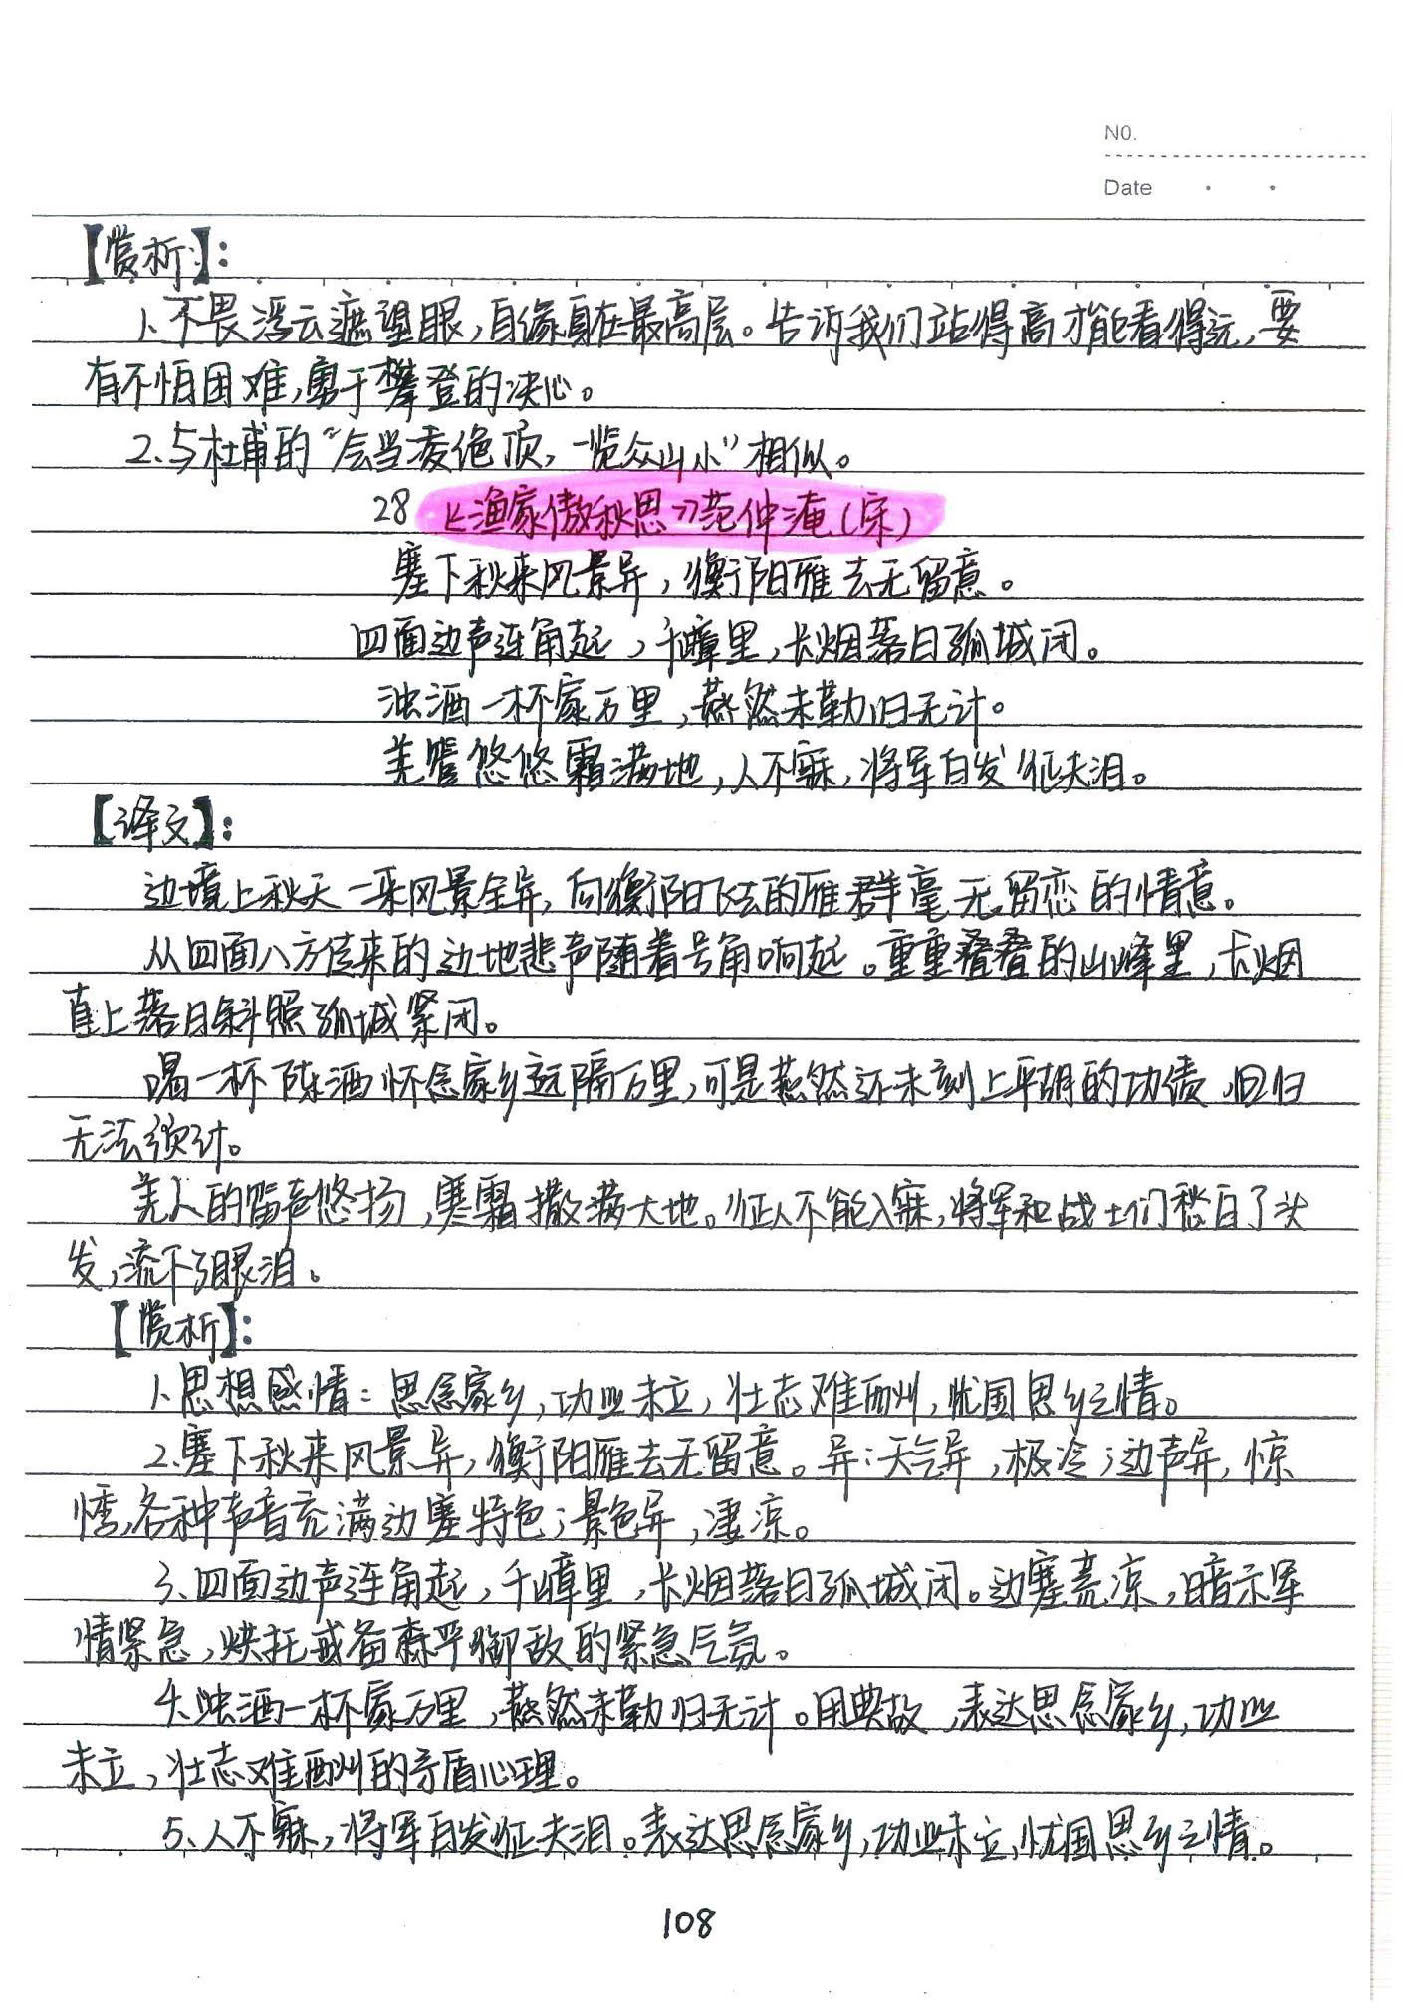 NO.
Date
【赏析】:
1、不畏浮云遮望眼,自缘身在最高层。告诉我们站得高才能看得远,要
有不怕困难,勇于攀登的决心。
2、与杜甫的“会当凌绝顶,一览众山小”相似。
28《渔家傲秋思》范仲淹(宋)
塞下秋来风景异,衡阳雁去无留意。
四面边声连角起,千嶂里,长烟落日孤城闭。
浊酒一杯家万里,燕然未勒归无计。
羌管悠悠霜满地,人不寐,将军白发征夫泪。
【译文】:
边境上秋天一来风景全异,向衡阳飞去的雁群毫无留恋的情意。
从四面八方传来的边地悲声随着号角响起。重重叠叠的山峰里,长烟
直上落日斜照孤城紧闭。
喝一杯陈酒怀念家乡远隔万里,可是燕然还未刻上平胡的功绩,回归
无法预计。
羌人的笛声悠扬,寒霜撒满大地。征人不能入寐,将军和战士们愁白了头
发,流下了眼泪。
【赏析】:
1、思想感情:思念家乡,功业未立,壮志难酬,忧国思乡之情。
2、塞下秋来风景异,衡阳雁去无留意。异:天气异,极冷;边声异,惊
悸,各种声音充满边塞特色;景色异,凄凉。
3、四面边声连角起,千嶂里,长烟落日孤城闭。边塞荒凉,暗示军
情紧急,烘托戒备森严御敌的紧急气氛。
4、浊酒一杯家万里,燕然未勒归无计。用典故,表达思念家乡,功业
未立,壮志难酬的矛盾心理。
5、人不寐,将军白发征夫泪。表达思念家乡,功业未立,忧国思乡之情。
108